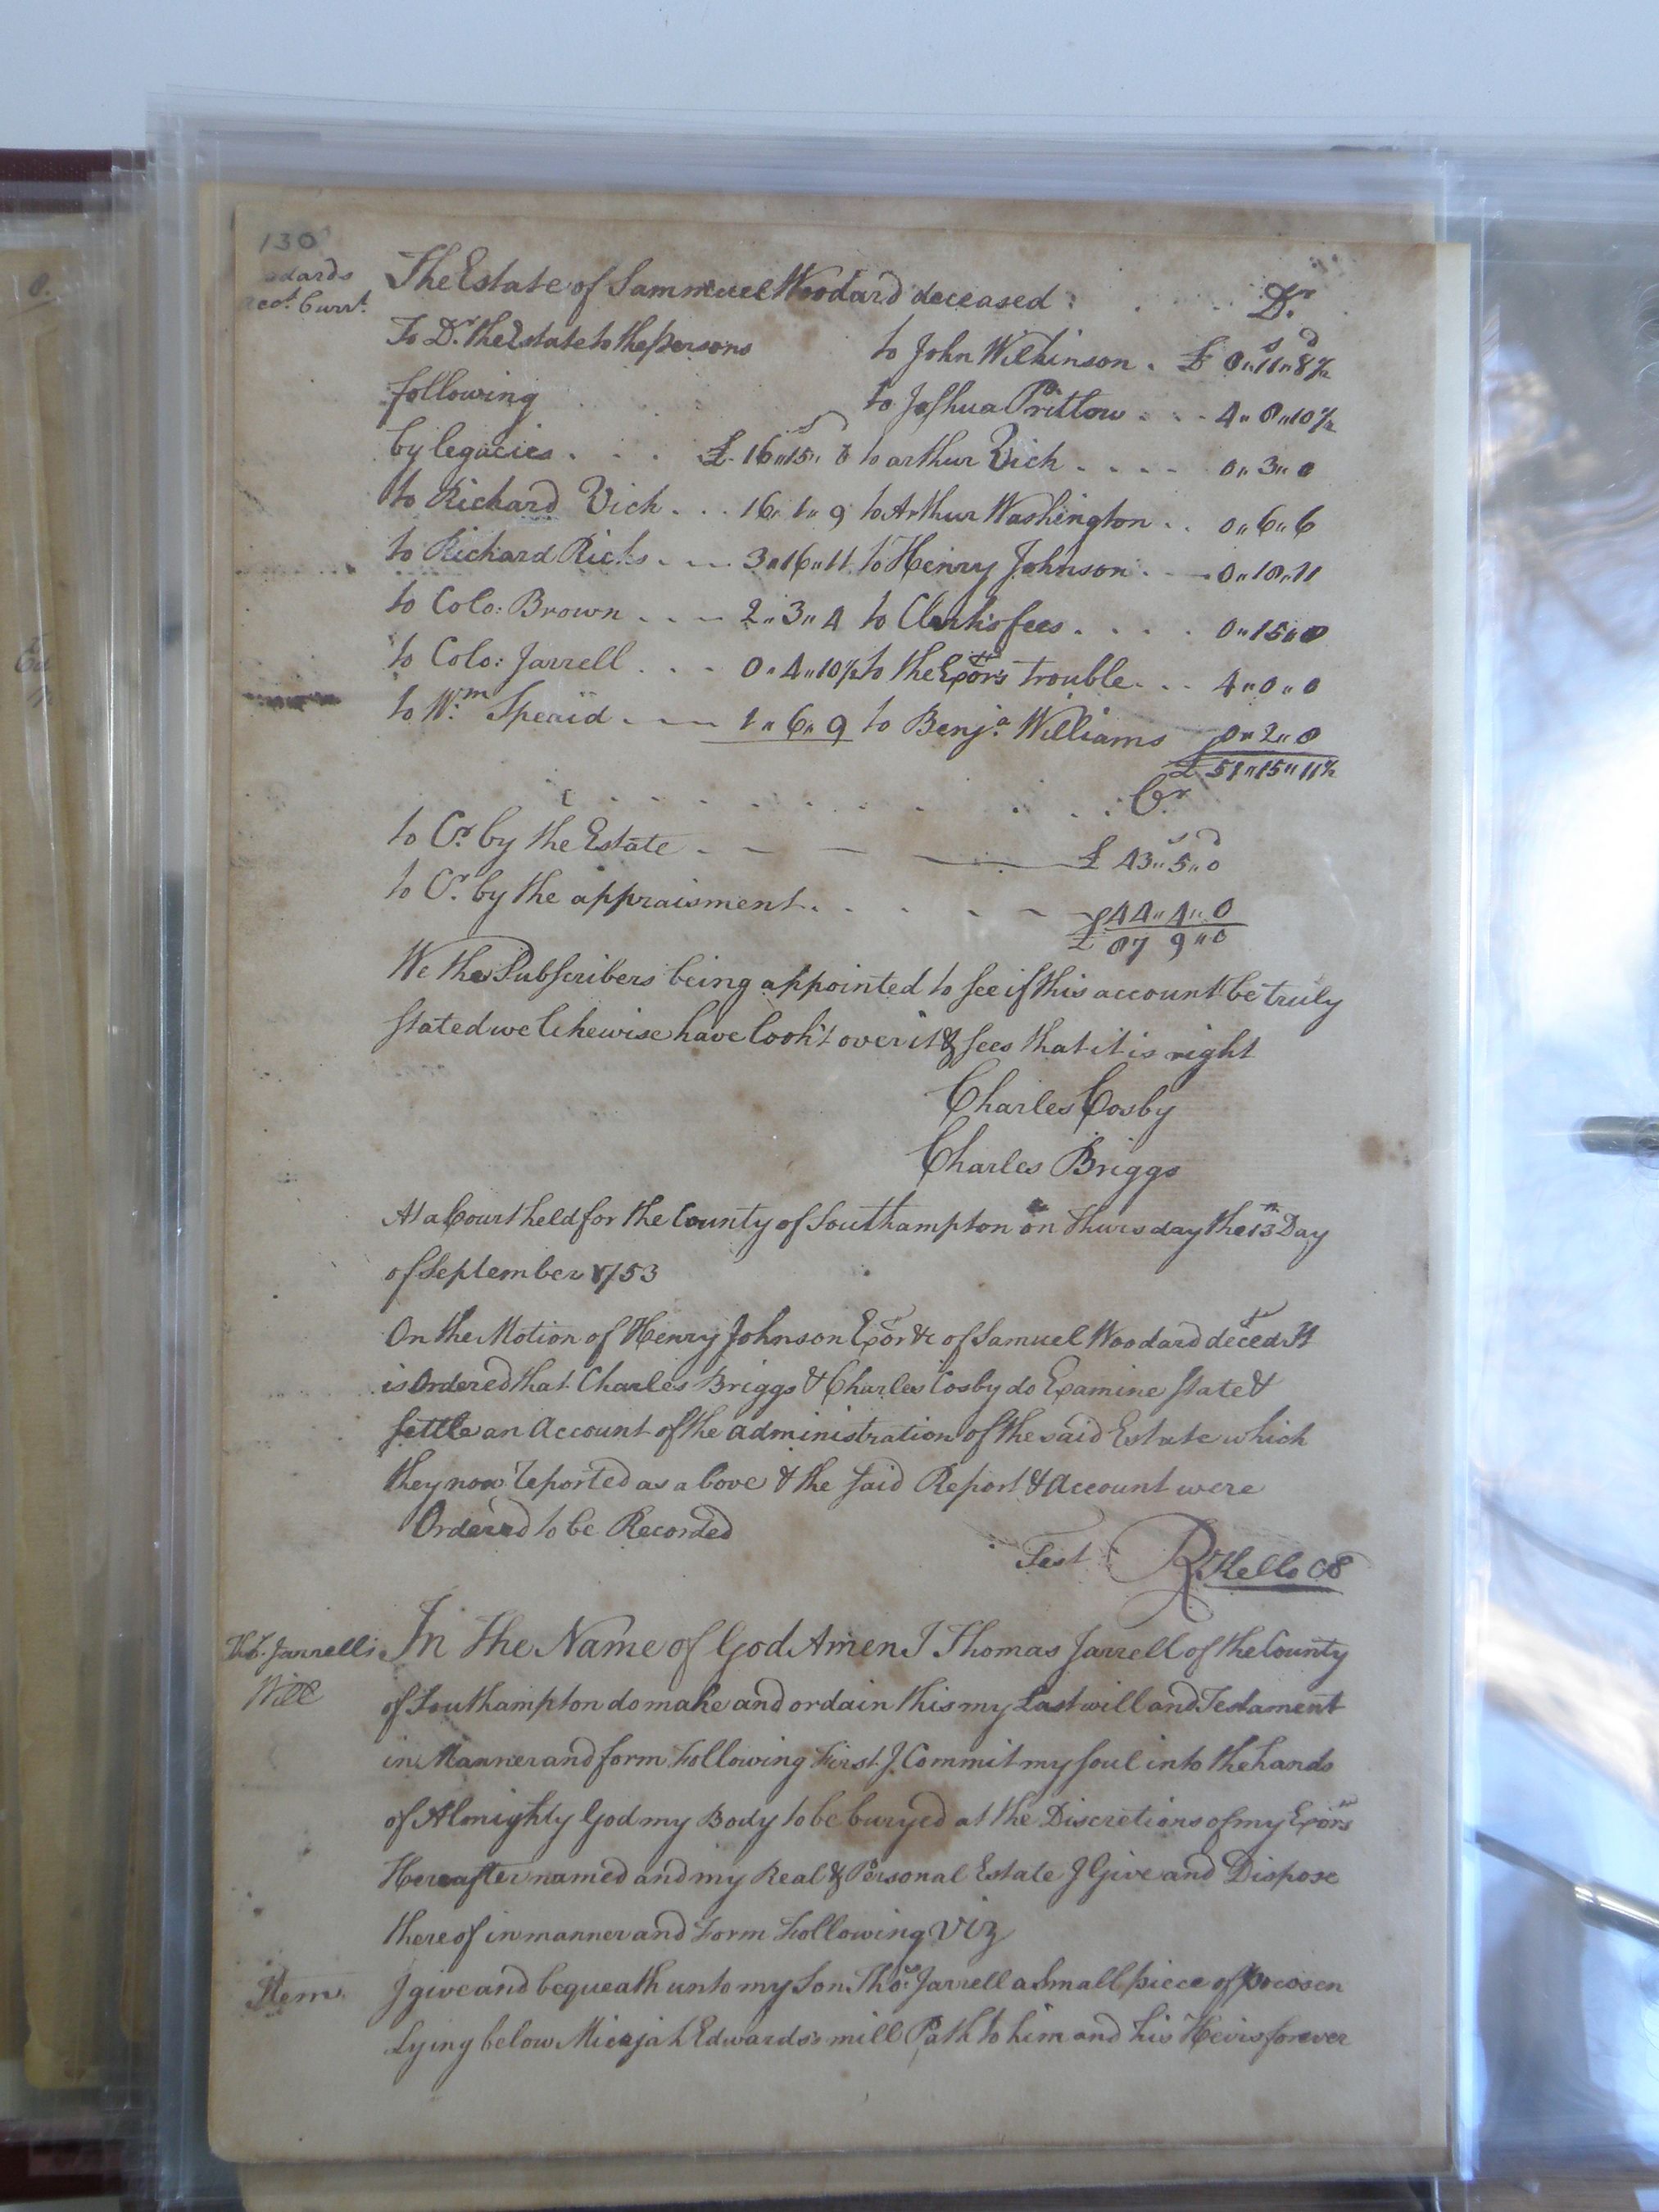 130
The Estate of Sammuel Woodard deceased Dr.
acot. Curr.t
To Dr. the Estate to the persons to John Wilkinson . £ 0"11"8½
following to Joshua Pritlow 4"0"10½
by legacies £ 16"15"8 to arthur Vick 0"3"0
to Richard Vick 16"1"9 to Arthur Washington 0"6"6
to Richard Ricks 3"16"11 to Henry Johnson 0"10"11
to Colo: Brown 2"3"4 to Clerks fees 0"15"0
to Colo: Jarrell 0"4"10½ to the Exors trouble 4"0"0
to Wm. Speaid 1"6"9 to Benja. Williams 0"2"0
£ 51"15"11½
Cr.
to Cr. by the Estate £ 43"5"0
to Cr. by the appraisment £ 44"4"0
£ 87 9"0
We the Subscribers being appointed to see if this account be truly
stated we likewise have look't over it & sees that it is right
Charles Cosby
Charles Briggs
At a Court held for the County of Southampton on Thursday the 13th Day
of September 1753
On the Motion of Henry Johnson Exor &c of Samuel Woodard deced It
is Ordered that Charles Briggs & Charles Cosby do Examine State &
Settle an Account of the administration of the said Estate which
they now reported as above & the said Report & Account were
Ordered to be Recorded
Test R Kello
Thos. Jarrells In the Name of God Amen I Thomas Jarrell of the County
Will
of Southampton do make and ordain this my Last will and Testament
in Manner and form Following First I Commit my soul into the hands
of Almighty God my Body to be buryed at the Discretions of my Exors
Hereafter named and my Real & Personal Estate I Give and Dispose
thereof in manner and Form Following Viz
Item I give and bequeath unto my Son Thos. Jarrell a Small piece of pocosen
Lying below Micajah Edwards's mill Path to him and his Heirs forever